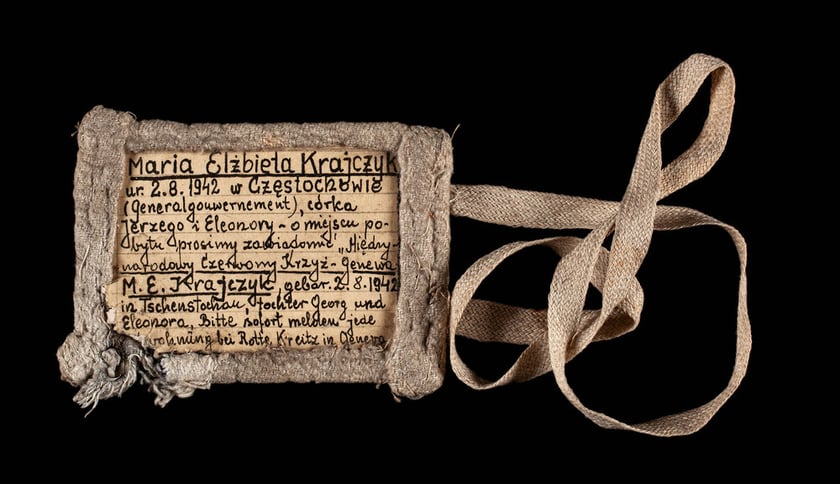 Maria Elżbieta Krajczyk
ur. 2.8.1942 w Częstochowie
(Generalgouvernement), córka
Jerzego i Eleonory - o miejscu po-
bytu prosimy zawiadomić „Między-
narodowy Czerwony Krzyż - Genewa
M. E. Krajczyk, gebor. 2.8.1942
in Tschenstochau, tochter Georg und
Eleonora. Bitte sofort melden jede
bei Rotte Kreitz in Geneva